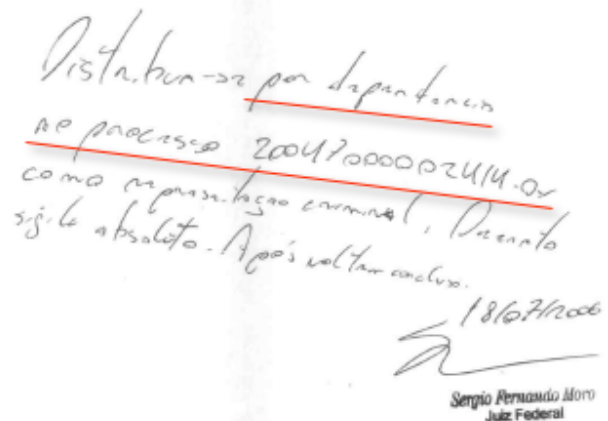 Distribua-se por dependencia
ao processo 20047000002414-0
como representação criminal. Decreto
sigilo absoluto. Após voltem conclusos.
18/07/2006
Sergio Fernando Moro
Juiz Federal